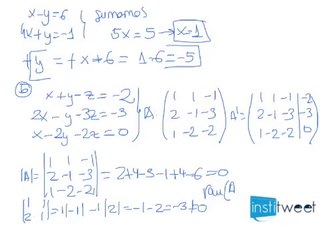 x-y=6 | sumamos
4x+y=-1 | 5x=5 → x=1
+y = +x+6 = 1-6=-5
b) x+y-z=-2
2x-y-3z=-3
x-2y-2z=0
A (1 1 -1
2 -1 -3
1 -2 -2)
A'= (1 1 -1 | -2
2 -1 -3 | -3
1 -2 -2 | 0)
|A| = |1 1 -1
2 -1 -3
1 -2 -2| = 2+4-3-1+4-6=0
|1 1
2 -1| = 1|-1| -1|2| = -1-2=-3≠0
institweet